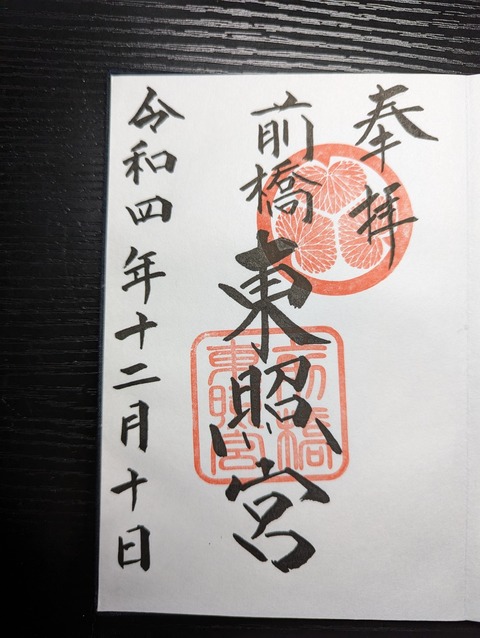 奉拝
前橋
東照宮
前橋
東照宮
令和四年十二月十日